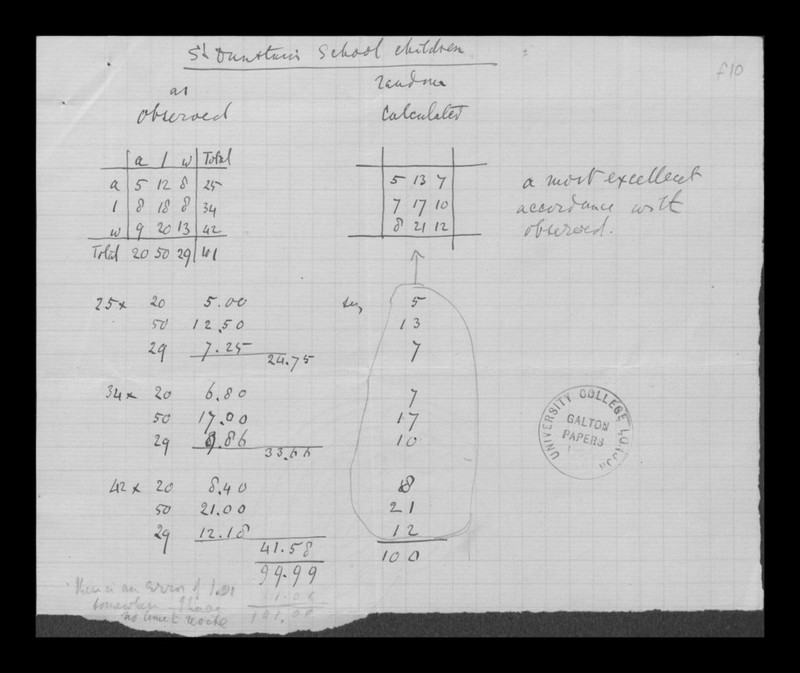 St Dunstan's School children
f10
as observed
random calculated
a l w Total
a 5 12 8 25
l 8 18 8 34
w 9 20 13 42
Total 20 50 29 101
5 13 7
7 17 10
8 21 12
a most excellent
accordance with
observed.
25 x 20 5.00
50 12.50
29 7.25
24.75
34 x 20 6.80
50 17.00
29 9.86
33.66
42 x 20 8.40
50 21.00
29 12.18
41.58
99.99
say 5
13
7
7
17
10
8
21
12
100
UNIVERSITY COLLEGE LONDON
GALTON
PAPERS
There is an error of 1.01
somewhere I have
no time to
101.00